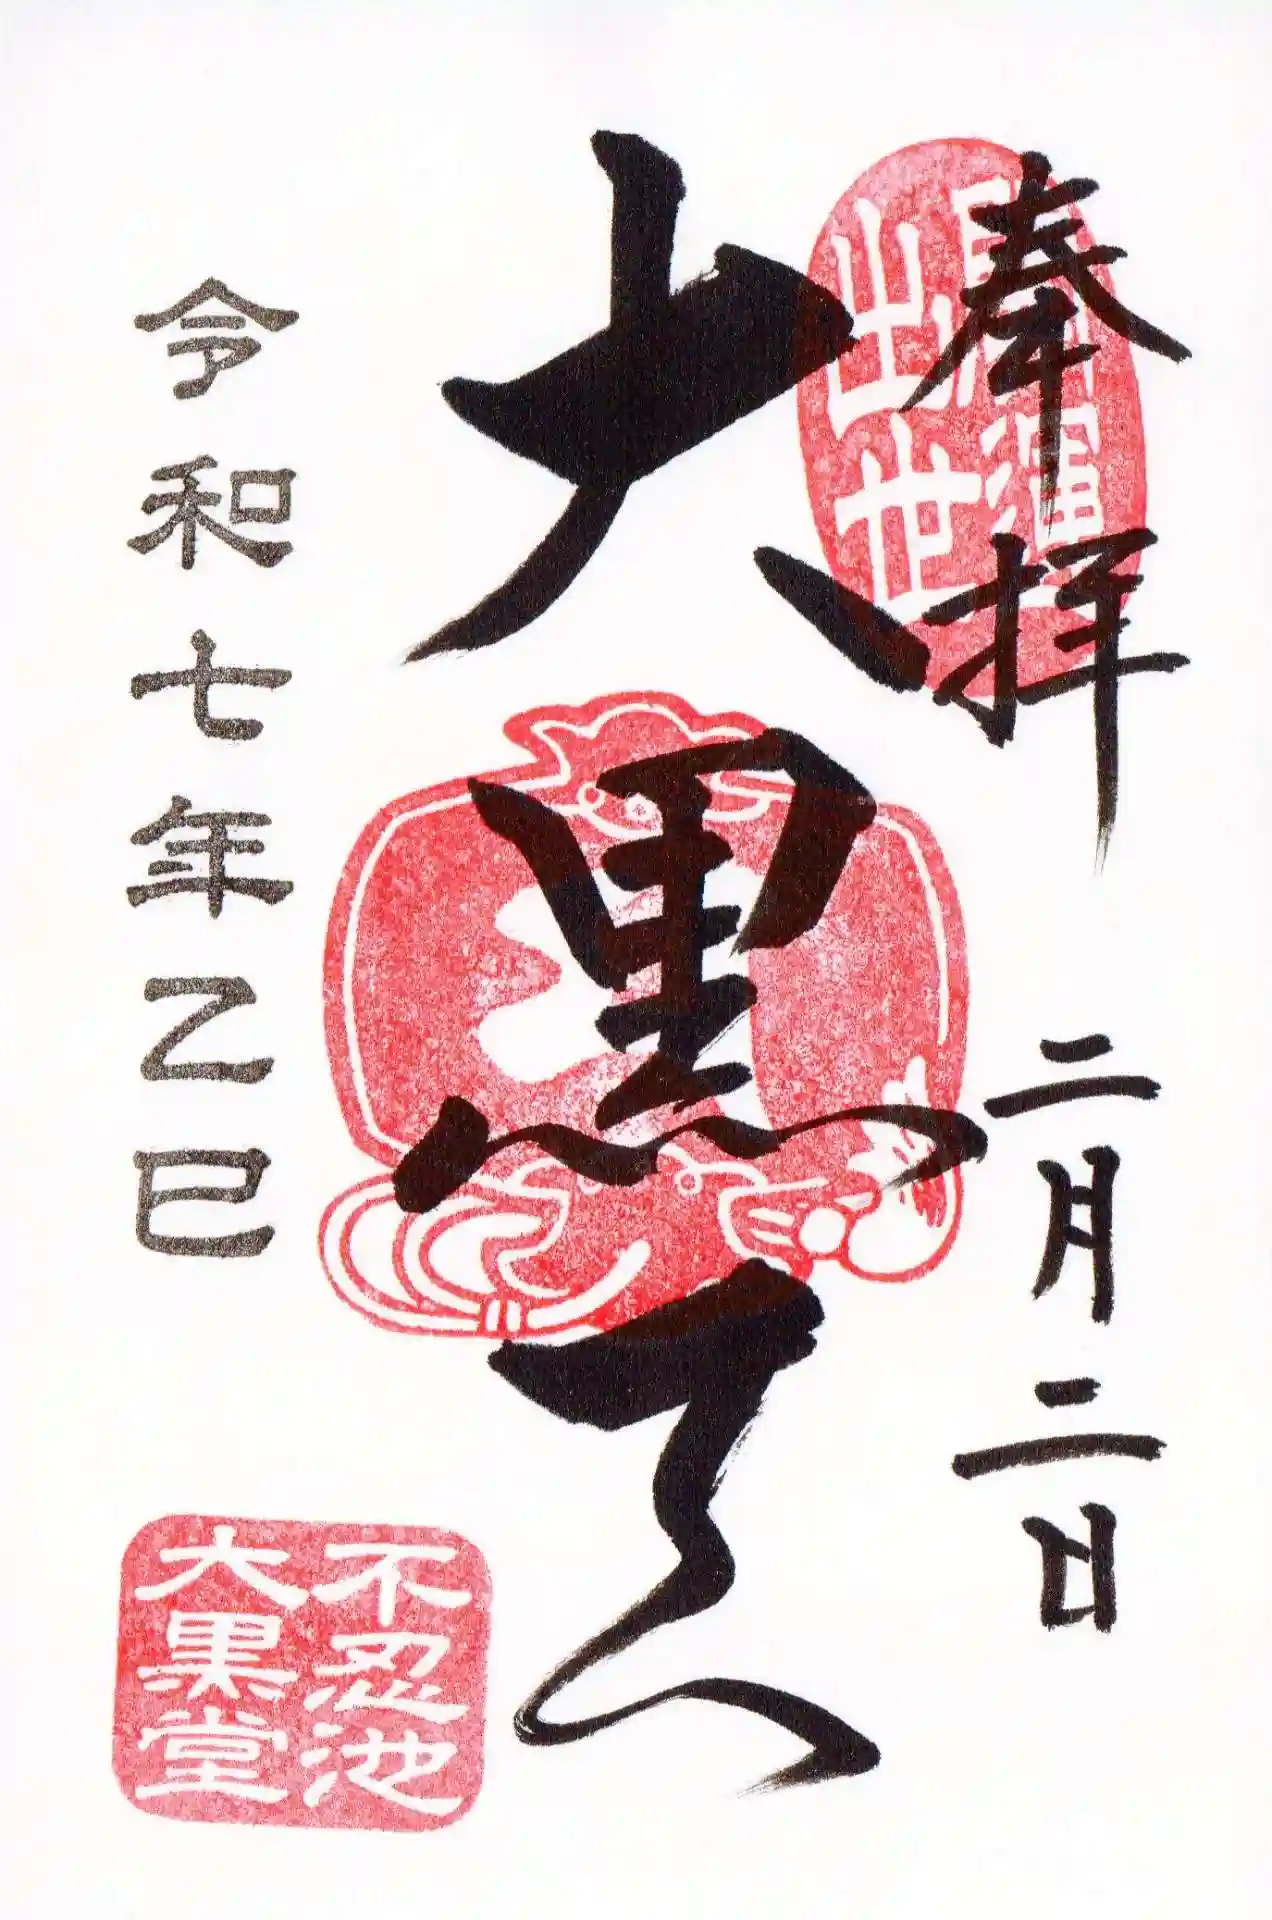 奉拝
二月二日
大黒天
令和七年乙巳
出世
不忍池
大黒堂